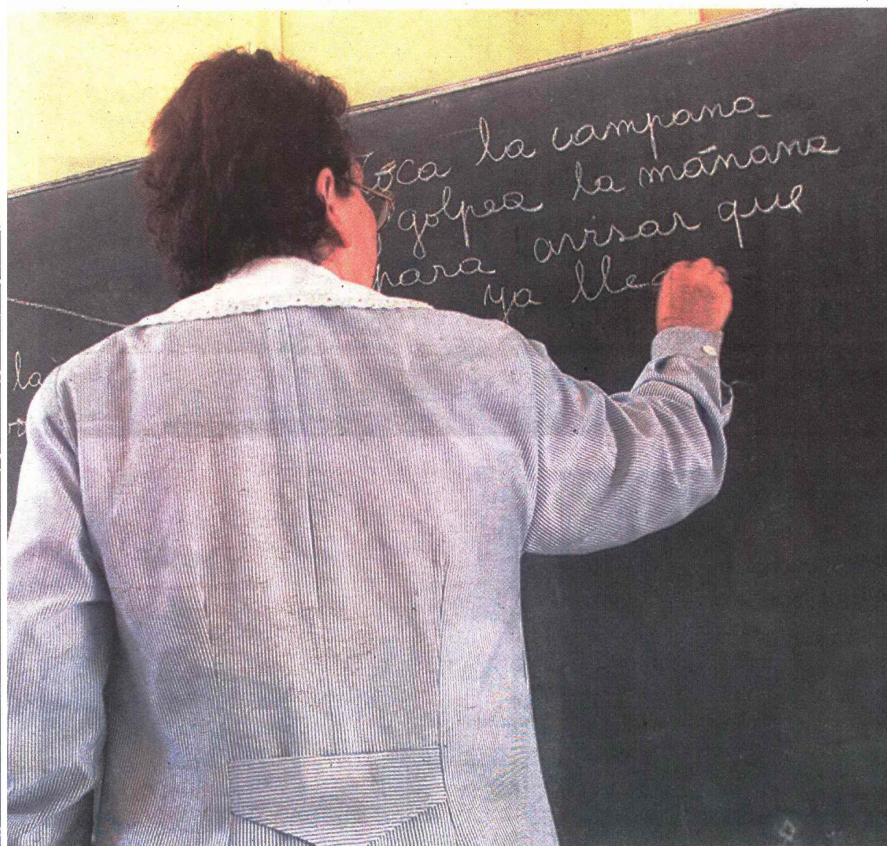 Toca la campana
golpea la mañana
para avisar que
ya lleg
la